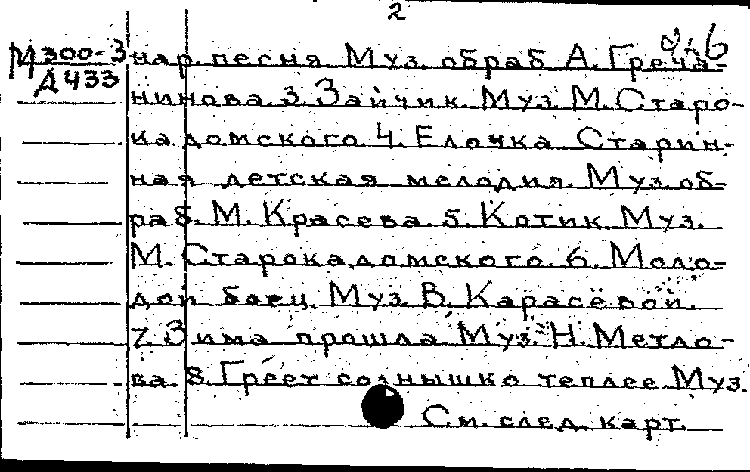 2
М 300-3 нар. песня Муз. обраб А. Греча-
Д 433
нинова 3. Зайчик. Муз М. Старо-
кадомского 4. Елочка Старин-
ная детская мелодия. Муз. об-
раб. М. Красева 5. Котик Муз.
М. Старокадомского. 6. Моло-
дой боец Муз. В. Карасёвой.
7. Зима прошла Муз. Н. Метло-
ва. 8. Греет солнышко теплее Муз.
См. след. карт.